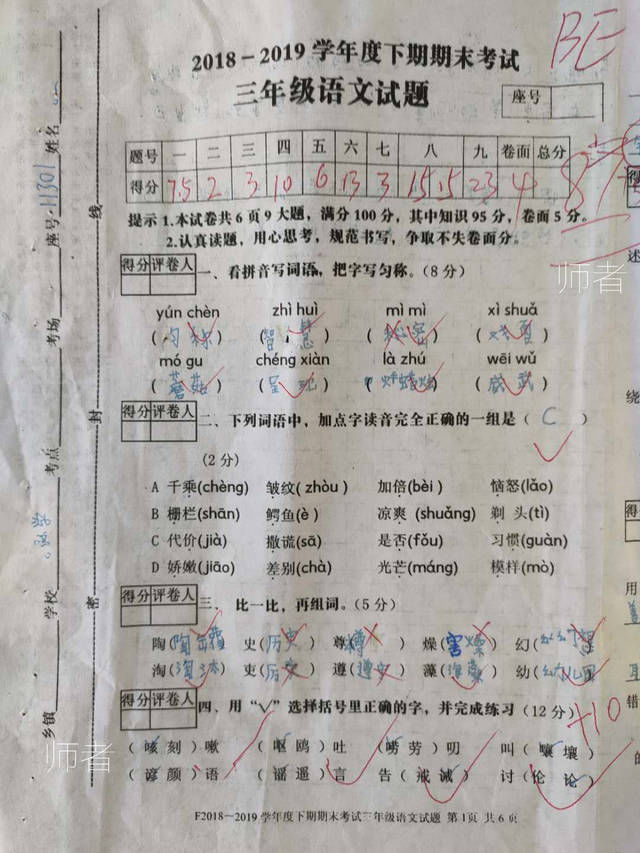 BE
2018－2019 学年度下期期末考试
三年级语文试题
座号
题号 一 二 三 四 五 六 七 八 九 卷面 总分
得分 7.5 2 3 10 6 13 3 15.5 23 4
提示 1.本试卷共 6 页 9 大题，满分 100 分，其中知识 95 分，卷面 5 分。
2.认真读题，用心思考，规范书写，争取不失卷面分。
师者
得分 评卷人
一、看拼音写词语，把字写匀称。（8 分）
yún chèn zhì huì mì mì xì shuǎ
（匀称）（智慧）（秘密）（ ）
mó gu chéng xiàn là zhú wēi wǔ
（蘑菇）（呈现）（ ）（威武）
得分 评卷人
二、下列词语中，加点字读音完全正确的一组是（ C ）
（2 分）
A 千乘(chèng) 皱纹( zhòu ) 加倍(bèi ) 恼怒(lǎo)
B 栅栏(shān) 鳄鱼(è ) 凉爽 (shuǎng) 剃 头(tì)
C 代价(jià) 撒谎(sā) 是否(fǒu) 习惯(guàn)
D 娇嫩(jiāo) 差别(chà) 光芒(máng) 模样(mò)
得分 评卷人
三、 比一比，再组词。（5 分）
陶（ ） 史（历史） 尊（ ） 燥（ ） 幻（ ）
淘（ ） 吏（历史） 遵（遵守） 藻（海藻） 幼（幼儿园）
得分 评卷人
四、用“√”选择括号里正确的字，并完成练习（12 分） +10
（ 咳 刻 ）嗽 （ 呕 鸥 ）吐 （ 唠 劳 ）叨 叫（ 嚷 壤 ）
（ 谚 颜 ）语 （ 谣 遥 ）言 告（ 戒 诫 ） 讨（ 伦 论 ）
F2018－2019 学年度下期期末考试三年级语文试题 第 1页 共 6 页
乡镇 学校 考点 考场 座号 11301 姓名
密 封 线
师者
得
述
绕
得
用
错